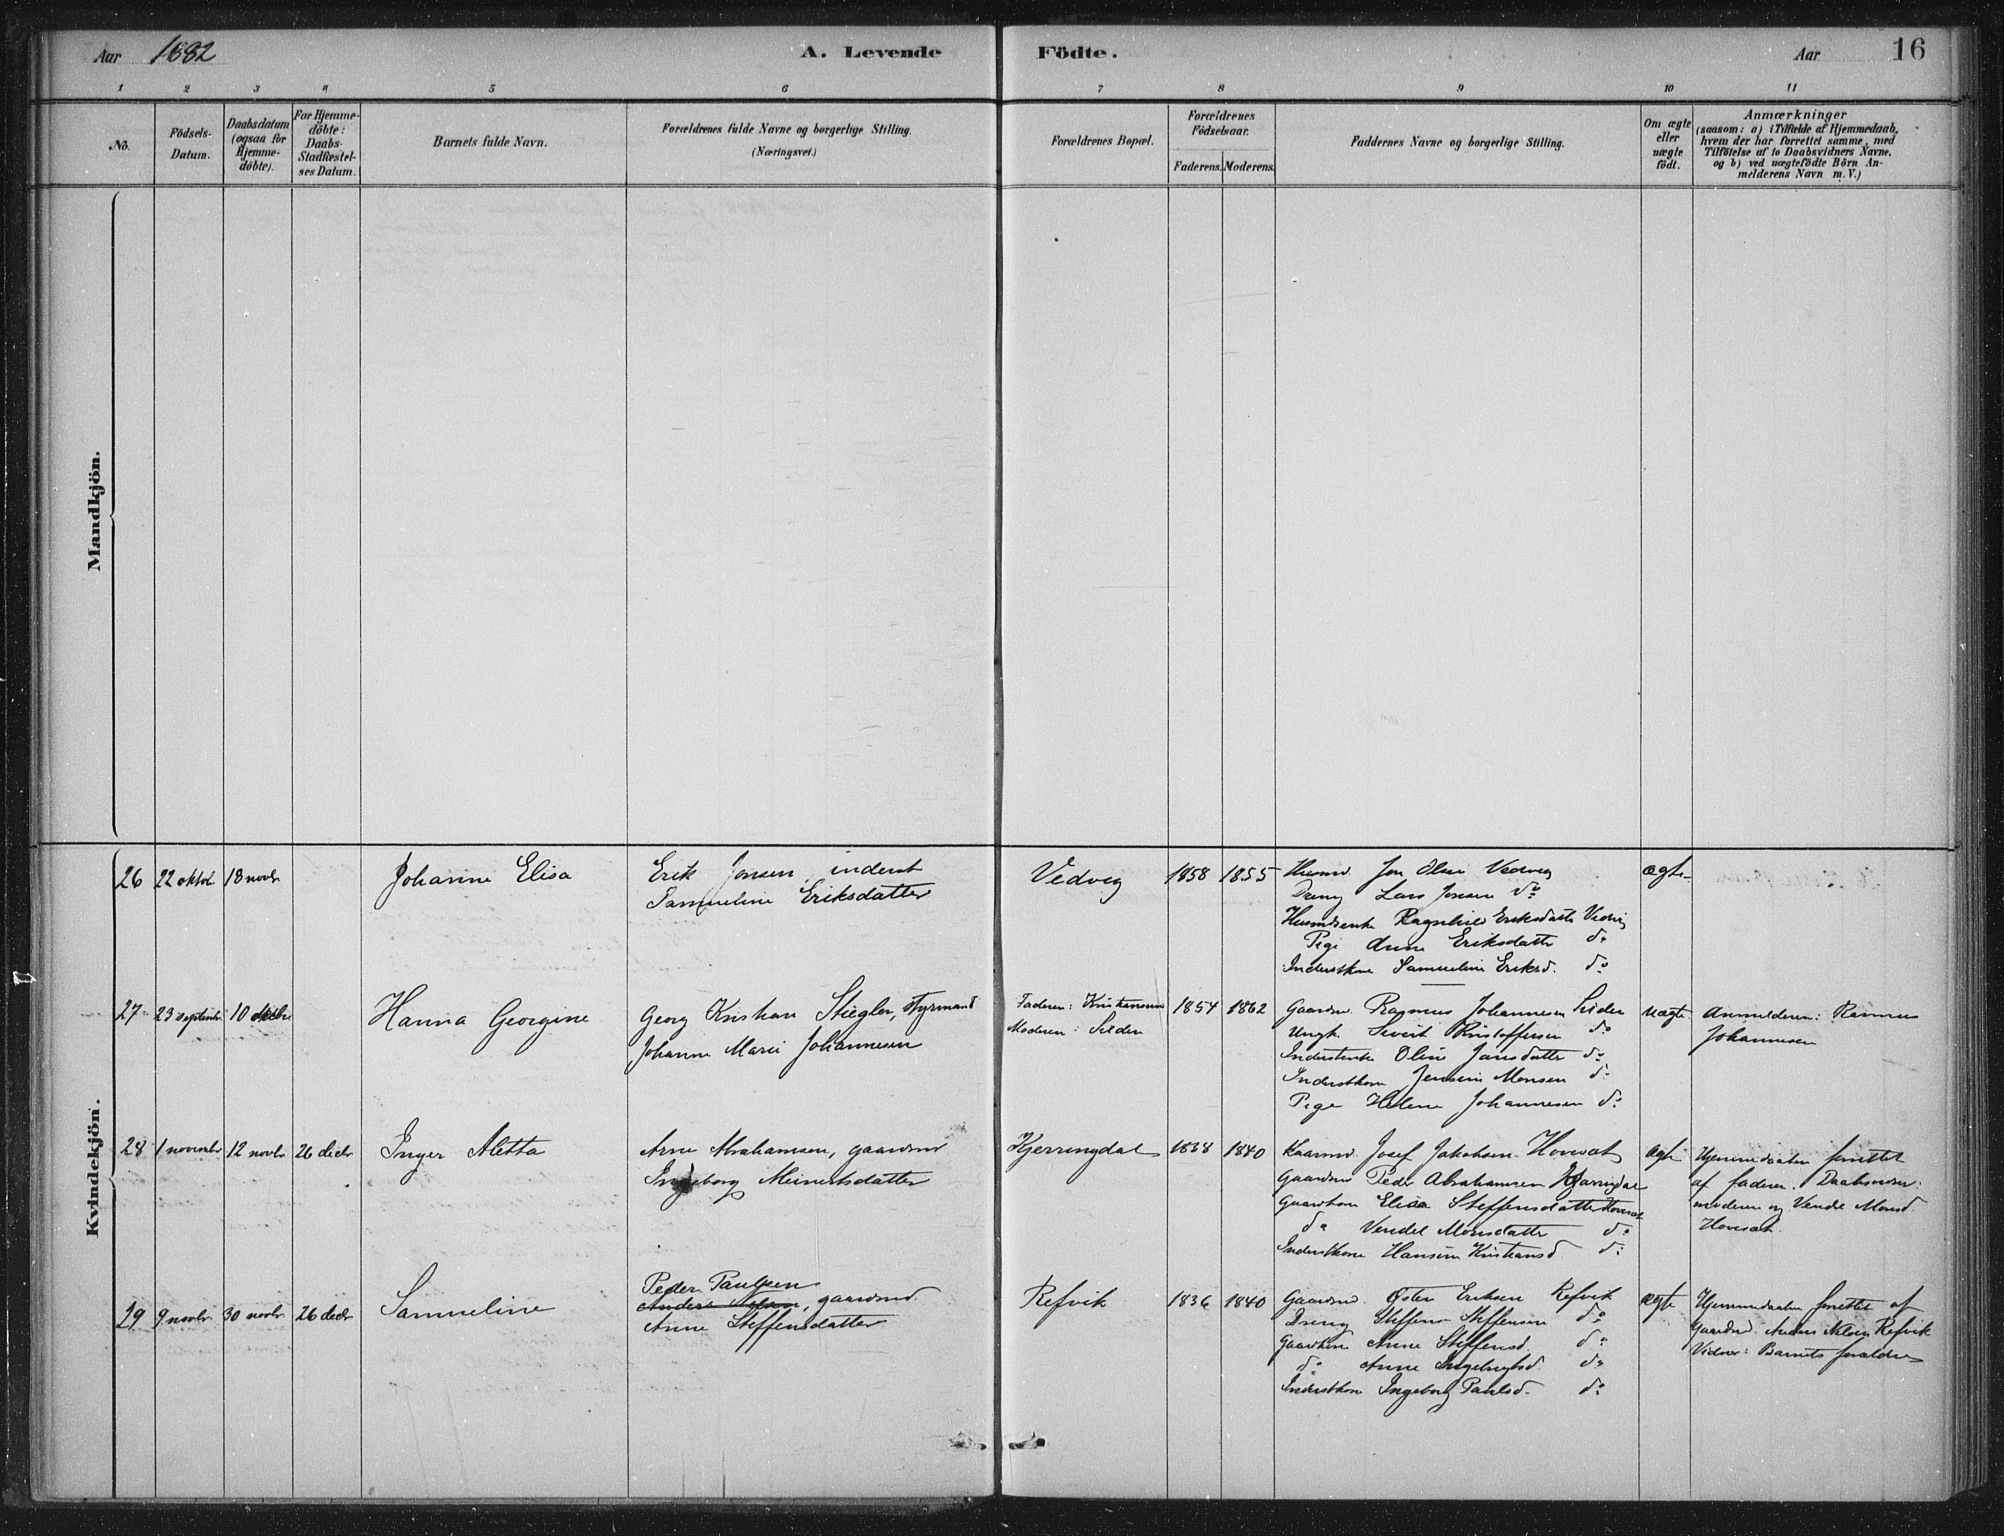 Aar 1882 A. Levende Födte. Aar 16
1 2 3 4 5 6 7 8 9 10 11
No.
Födsels-Datum.
Daabsdatum (ogsaa for Hjemme-döbte).
For Hjemme-döbte: Daabs-Stadfæstel-ses Datum.
Barnets fulde Navn.
Forældrenes fulde Navne og borgerlige Stilling.
(Næringsvei.)
Forældrenes Bopæl.
Forældrenes Födselsaar.
Faderens. Moderens.
Faddernes Navne og borgerlige Stilling.
Om ægte eller uægte födt.
Anmærkninger
(saasom: a) i Tilfælde af Hjemmedaab,
hvem der har forrettet samme, med
Tilföielse af to Daabsvidners Navne,
og b) ved uægtefödte Börn An-
melderens Navn m. V.)
Mandkjön.
Kvindekjön.
26 22 oktbr 18 novbr Johanne Elisa Erik Jonsen, inderst
Samueline Eriksdatter
Vedvig 1858 1855 Husmd. Jon Olsen Vedvig ægte
Dreng Lars Jonsen do
Husmdsenke Ragnhild Eriksdatter Vedvig
Pige Anne Eriksdatter do
Inderstkone Samueline Eriksd. do
27 23 septbr 10 Hanna Georgine Georg Kristian Stiegler, styrmand
Johanne Marie Johannesen
Faderen: Kristiansund 1854 1862 Gaardm. Rasmus Johannesen Silden uægte Anmelderen: Rasmus
Moderen: Silden Ungk. Sivert Kristoffersen do Johannesen
Inderstenke Oline Jansdatter do
Inderstkone Jensine Monsen do
Pige Helene Johannesen do
28 1 novembr 12 novbr 26 decbr Inger Aletta Arne Abrahamsen, gaardmd
Ingeborg Meinertsdatter
Kjerringdal 1838 1840 Kaarmd. Josef Jakobsen Hovesæt ægte Hjemmedaaben forrettet
Gaardmd Peder Abrahamsen Kjerringdal af faderen. Daabsvidner:
Gaardkone Elisa Steffensdatter Hovesæt moderen og Vendel Monsd.
do Vendel Monsdatter do Hovesæt.
Inderstkone Hansine Kristiansd do
29 9 novbr 30 novbr 26 decbr Samueline Peder Paulsen
Anders Nilsen, gaardmd.
Anne Steffensdatter
Refvik 1836 1840 Gaardmd. Østen Eriksen Refvik ægte Hjemmedaaben forrettet af
Dreng Steffen Steffensen do Gaardmd. Anders Nilsen Refvik
Gaardkone Anne Steffensd. do Vidner: Barnets forældre
do Anne Ingebrigtsd. do
Inderstkone Ingeborg Paulsd. do